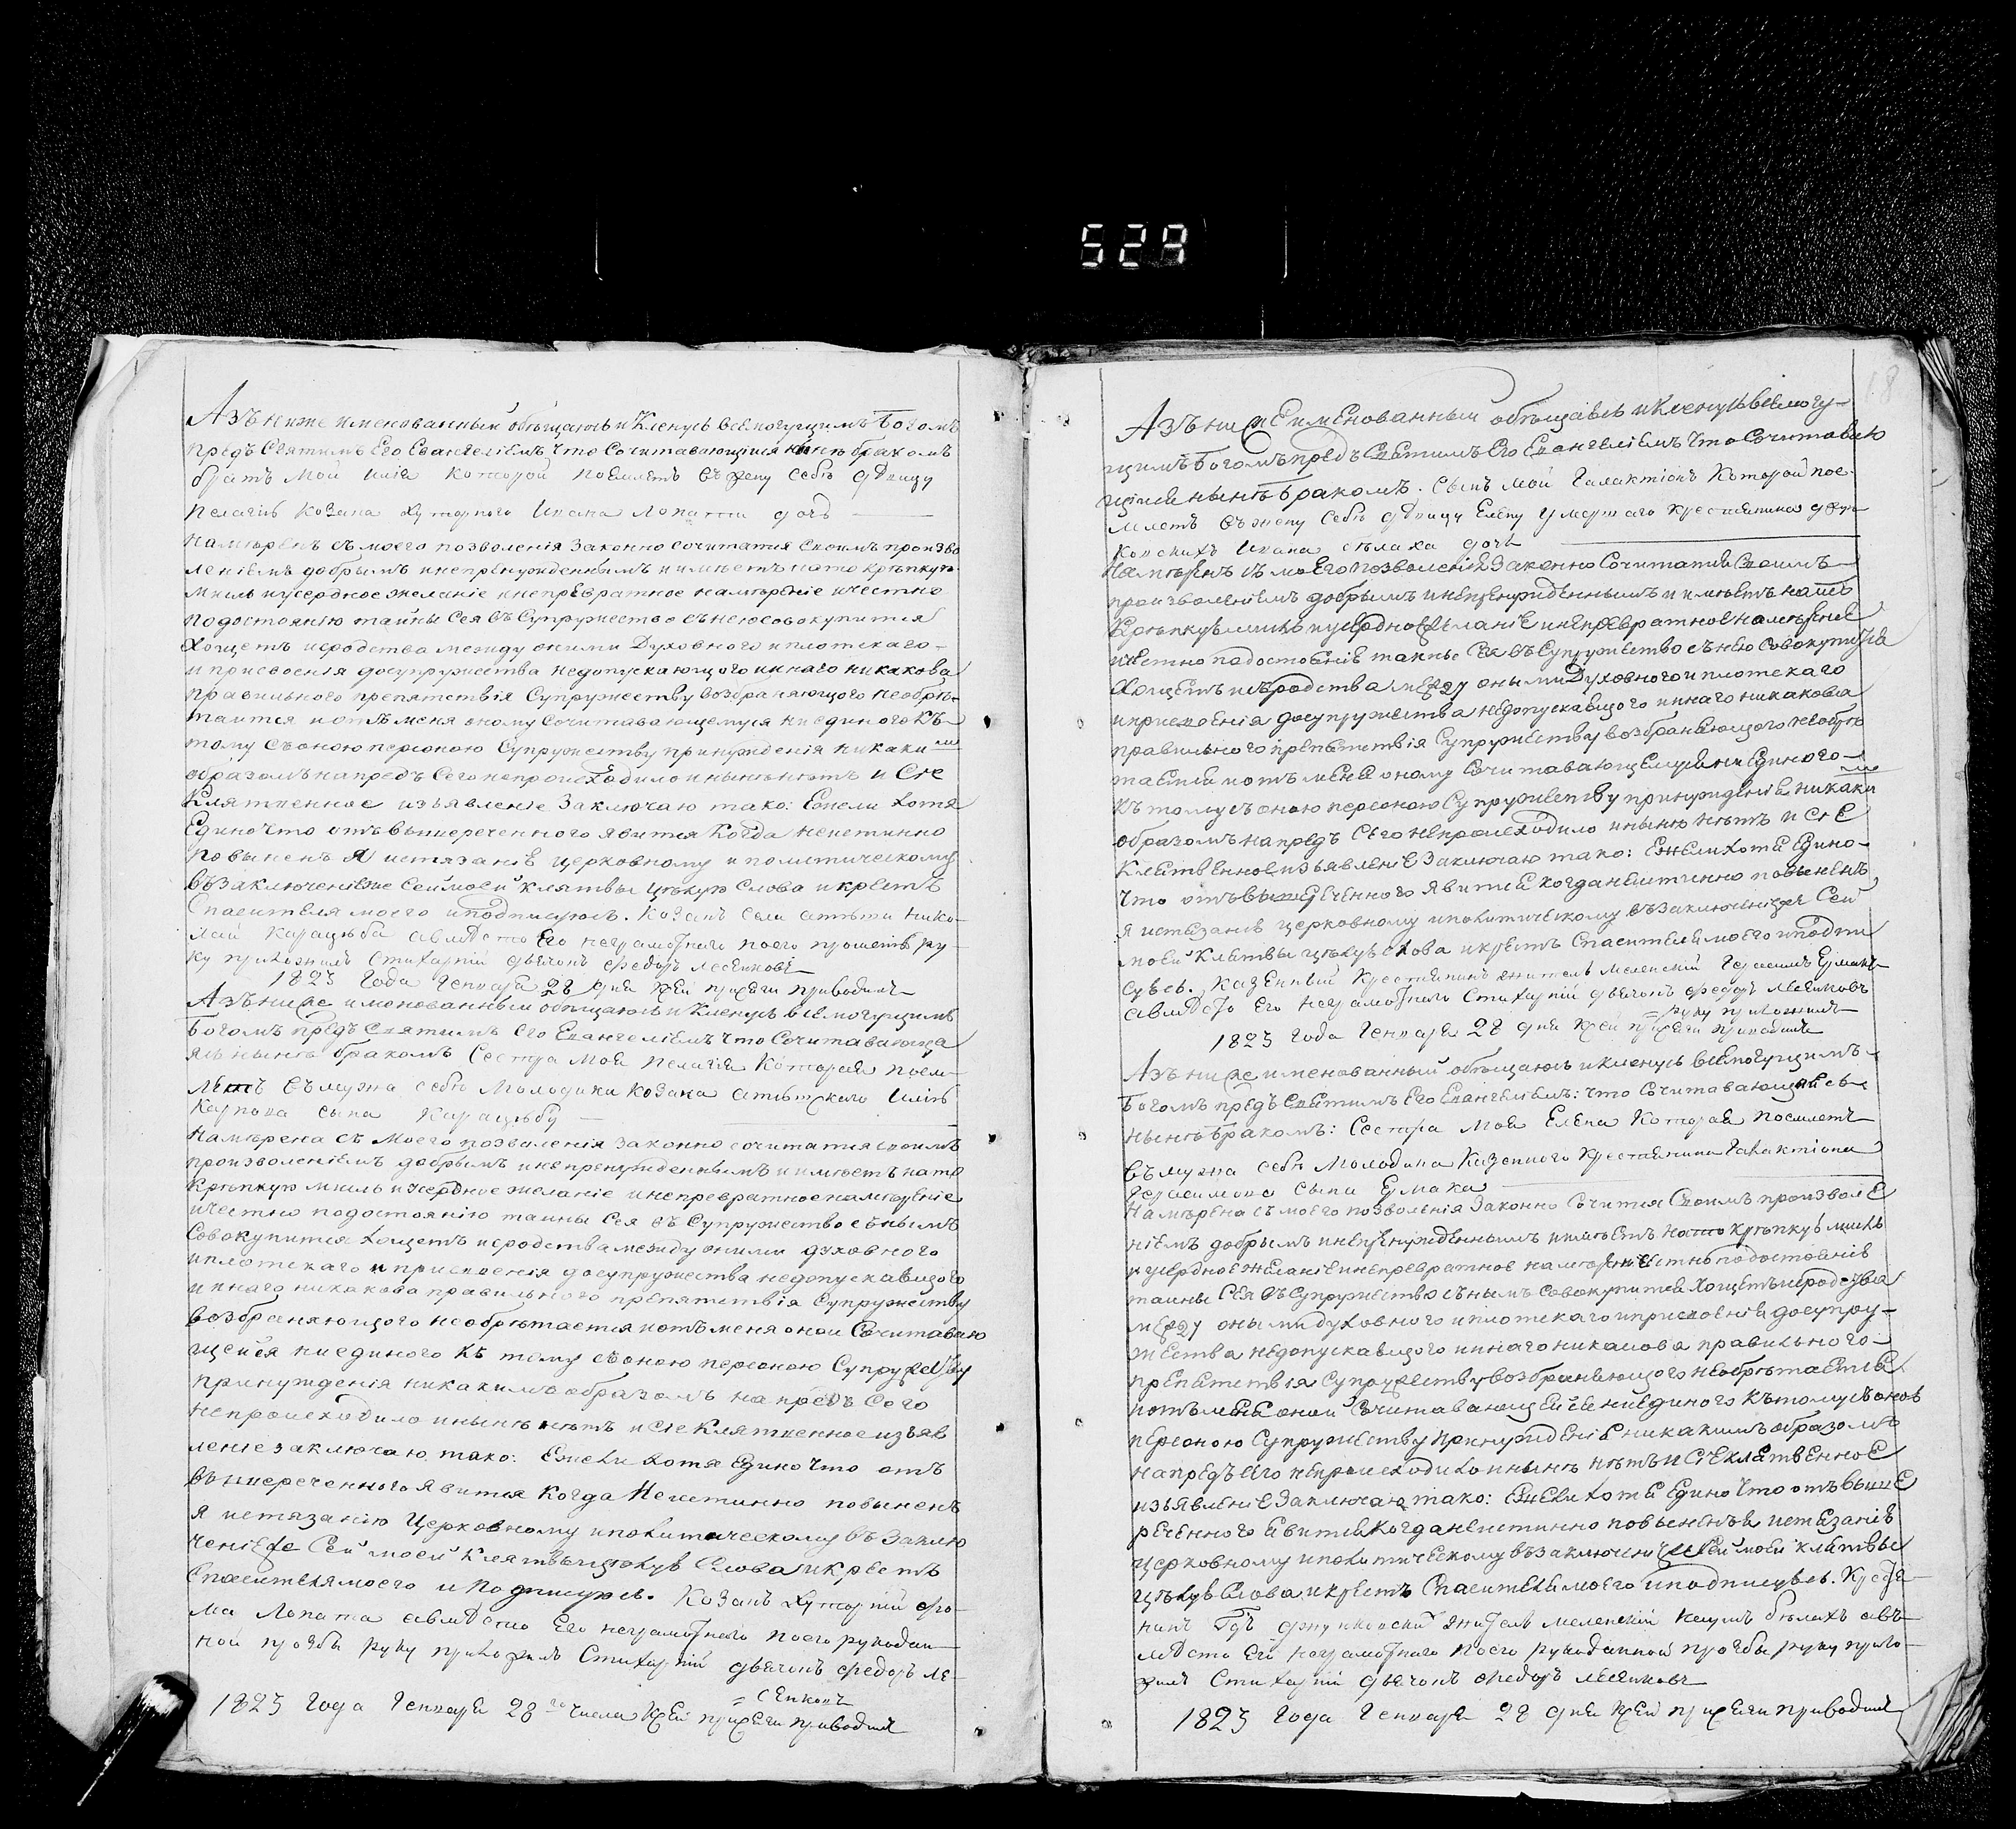 529
Азъ ниже именованный обѣщаюсь и Кленусь всемогущимъ Богомъ
предъ Святымъ Его Евангеліемъ что Сочитавающійся нынѣ бракомъ
братъ мой Илія которой поемлетъ въ жену себѣ дѣвицу
Пелагію козака Хуторного Ивана Лопати дочь
намѣренъ съ моего позволенія законно сочитатися своимъ произво
леніемъ добрымъ и непренужденнымъ и имѣетъ на то крѣпкую
мысль и усердное желаніе и непревратное намѣреніе и честно
по достоянію тайны Сея въ Супружество съ нею совокупитися
хощетъ и сродства между оними Духовного и плотскаго
и присвоенія до супружества недопускающого и инаго никакова
правильного препятствія Супружеству возбраняющого необрѣ
тается и отъ меня оному Сочитавающемуся ни единого къ
тому съ оною персоною Супружеству принужденія никаки мъ
образомъ напредъ Сего непроисходило и нынѣ нѣтъ и Сіе
Клятвенное изъявленіе Заключаю тако: Ежели хотя
Едино что отъ вышереченного явится Когда неистинно
повыненъ я истязанію церковному и политическому
въ заключеніе же Сей моей клятвы цѣлую Слова и крестъ
Спасителя моего и подписуюсь. Козакъ села Нико-
лай Карацюба а вмѣсто Его неграмотного по его прошенію ру
ку приложилъ Стихарный дьячокъ Федоръ
1823 Года Генваря 28 дня къ сей присяги приводилъ
Азъ ниже именованный обѣщаюсь и Кленусь всемогущимъ
Богомъ предъ Святымъ Его Евангеліемъ что Сочитавающа
яся нынѣ бракомъ Сестра Моя Пелагія Которая поем-
летъ въ мужа себѣ Молодика козака Илію
Карпова сына Карацюбу
намѣрена съ моего позволенія законно сочитатися своимъ
произволеніемъ добрымъ и непренужденнымъ и имѣетъ на то
Крѣпкую мысль и усердное желаніе и непревратное намѣреніе
и честно по достоянію тайны Сея въ Супружество съ нымъ
Совокупится хощетъ и сродства между оними духовного
и плотскаго и присвоенія до супружества недопускающого
и инаго никакова правильного препятствія Супружеству
возбраняющого необрѣтается и отъ меня оной Сочитаваю
щейся ни единого къ тому съ оною персоною Супружеству
принужденія никакимъ образомъ напредъ Сего
непроисходило и нынѣ нѣтъ и Сіе Клятвенное изъяв
леніе заключаю тако: Ежели хотя Едино что отъ
вышереченного явится когда Неистинно повыненъ
я истязанію Церковному и политическому въ Заклю
ченіе же Сей моей клятвы цѣлую Слова и крестъ
Спасителя моего и Подписуюсь. Козакъ Хуторній Фо-
ма Лопата а вмѣсто Его неграмотного по его рукодан
ной прозбы руку приложилъ Стихарній дьячокъ Федоръ
1823 Года Генваря 28 го числа къ Сей присяги приводилъ
18
Азъ ниже именованный обѣщаюсь и кленусь всемогу-
щимъ Богомъ предъ Святымъ Его Евангеліемъ что Сочитаваю
щійся нынѣ бракомъ. Сынъ мой Галактіонъ Которой пое-
млетъ въ жену себѣ дѣвицу Елену умершаго крестьянина
Ивана дочь
Намѣренъ съ моего позволенія Законно Сочитатися Своимъ
произволеніемъ добрымъ и непренужденнымъ и имѣетъ на то
Крѣпкую мысль и усердное желаніе и непревратное намѣреніе
и честно по достоянію тайны Сея въ Супружество съ нею Совокупится
Хощетъ и сродства между оными Духовного и плотскаго
и присвоенія до супружества недопускающого и инаго никакова
правильного препятствія Супружеству возбраняющого необрѣ
тается и отъ меня оному Сочитавающемуся ни единого
къ тому съ оною персоною Супружеству принужденія никаки мъ
образомъ напредъ Сего непроисходило и нынѣ нѣтъ и Сіе
Клятвенное изъявленіе Заключаю тако: Ежели хотя Едино-
что отъ вышереченного явится когда неистинно повыненъ
я истязанію церковному и политическому въ заключеніе же Сей
моей Клятвы цѣлую слова и крестъ Спасителя моего и подпи
суюсь. Казенный Крестянинъ житель Герасимъ Ермакъ
а вмѣсто Его неграмотного Стихарній дьячокъ Федоръ
руку приложилъ
1823 Года Генваря 28 дня къ Сей присяги приводилъ
Азъ ниже именованный обѣщаюсь и кленусь всемогущимъ
Богомъ предъ Святымъ Его Евангеліемъ: что Сочитавающаясь
нынѣ бракомъ: Сестра Моя Елена Которая поемлетъ
въ мужа себѣ Молодика Казенного Крестянина Галактіона
Герасимова сына Ермака
Намѣрена съ моего позволенія Законно Сочитися Своимъ произволе
ніемъ добрымъ и непренужденнымъ и имѣетъ на то крѣпкую мысль
и усердное желаніе и непревратное намѣреніе и честно по достоянію
тайны Сея въ Супружество съ нымъ совокупится хощетъ и сродства
между оными духовного и плотскаго и присвоенія до супру-
жества недопускающого и инаго никакова правильного
препятствія Супружеству возбраняющого необрѣтается
и отъ меня оной Сочитавающейся ни единого къ тому съ оною
персоною Супружеству принужденія никакимъ образомъ
напредъ Сего непроисходило и нынѣ нѣтъ и Сіе клятвенное
изъявленіе заключаю тако: Ежели хотя Едино что отъ выше
реченного явится когда неистинно повыненъ я истязанію
церковному и политическому въ заключеніе же Сей моей клятвы
цѣлую Слова и крестъ Спасителя моего и подписуюсь.
житель а въ
мѣсто Его неграмотного по его рукоданной прозбы руку прило-
жилъ Стихарній дьячокъ Федоръ
1823 Года Генваря 28 дня къ Сей присяги приводилъ